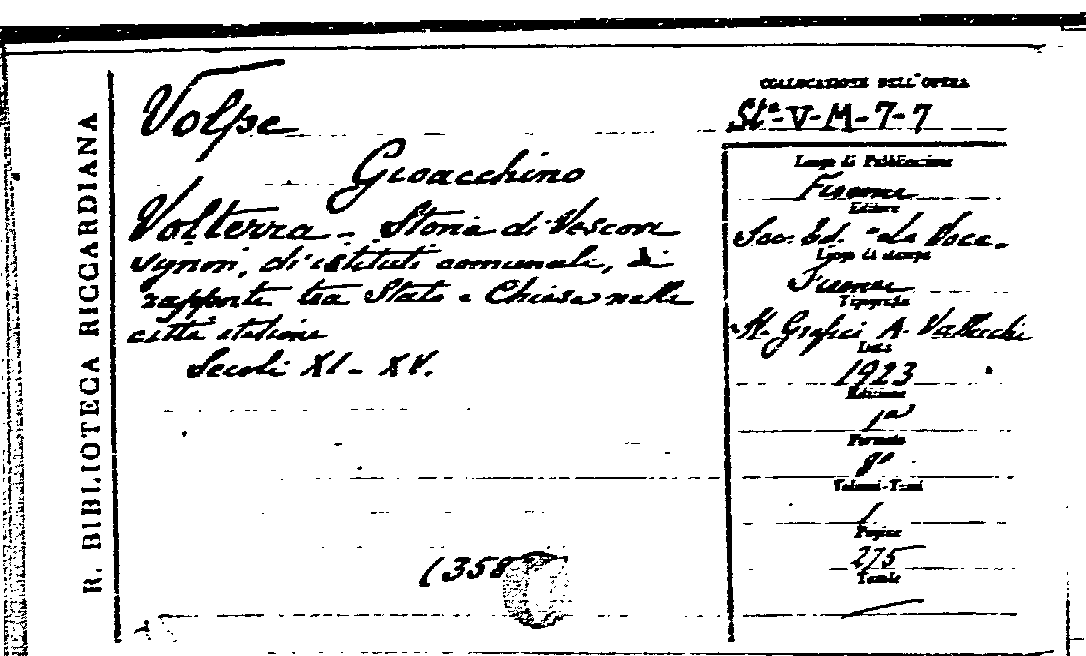 R. BIBLIOTECA RICCARDIANA
Volpe
Gioacchino
Volterra - Storia di Vescovi
signori, di istituti comunali, di
rapporti tra Stato e Chiesa nelle
città italiane
Secoli XI - XV.
(358
COLLOCAZIONE DELL'OPERA
Sta-V-M-7-7
Luogo di Pubblicazione
Firenze
Editore
Soc. Ed. "La Voce"
Luogo di stampa
Firenze
Tipografia
St. Grafici A. Vallecchi
Data
1923
Edizione
1a
Formato
8°
Volumi-Tomi
1
Pagine
275
Tavole